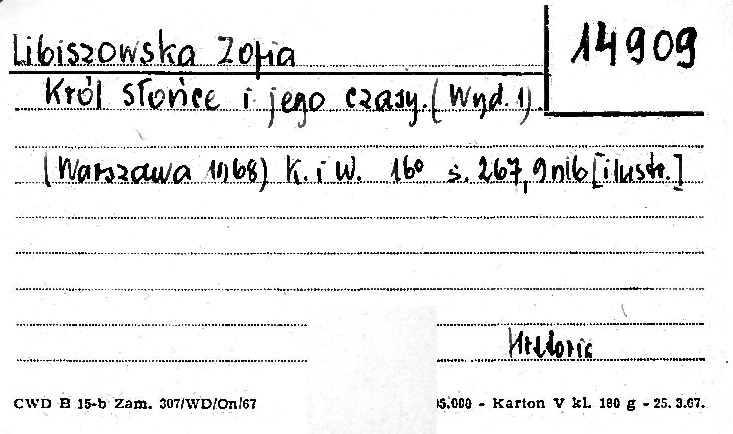 Libiszowska Zofia
14909
Król Słońce i jego czasy. (Wyd. 1)
(Warszawa 1968) K. i W. 16° s. 267, 9 nlb [ilustr.]
Historia
CWD B 15-b Zam. 307/WD/On/67
5.000 - Karton V kl. 180 g - 25. 3.67.